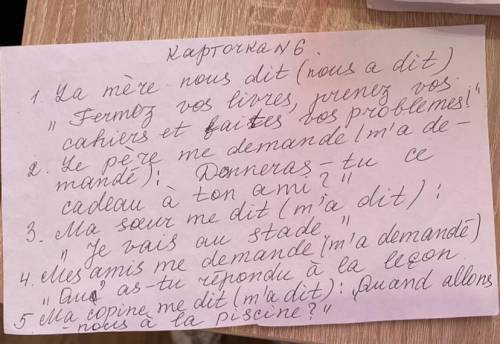 Карточка N 6
1. La mère nous dit (nous a dit)
"Fermez vos livres, prenez vos
cahiers et faites vos problèmes!"
2. Le père me demande (m'a de-
mandé): Donneras-tu ce
cadeau à ton ami?"
3. Ma sœur me dit (m'a dit):
"Je vais au stade"
4. Mes amis me demande (m'a demandé)
"Qui as-tu répondu à la leçon
5. Ma copine me dit (m'a dit): "Quand allons
-nous à la piscine?"